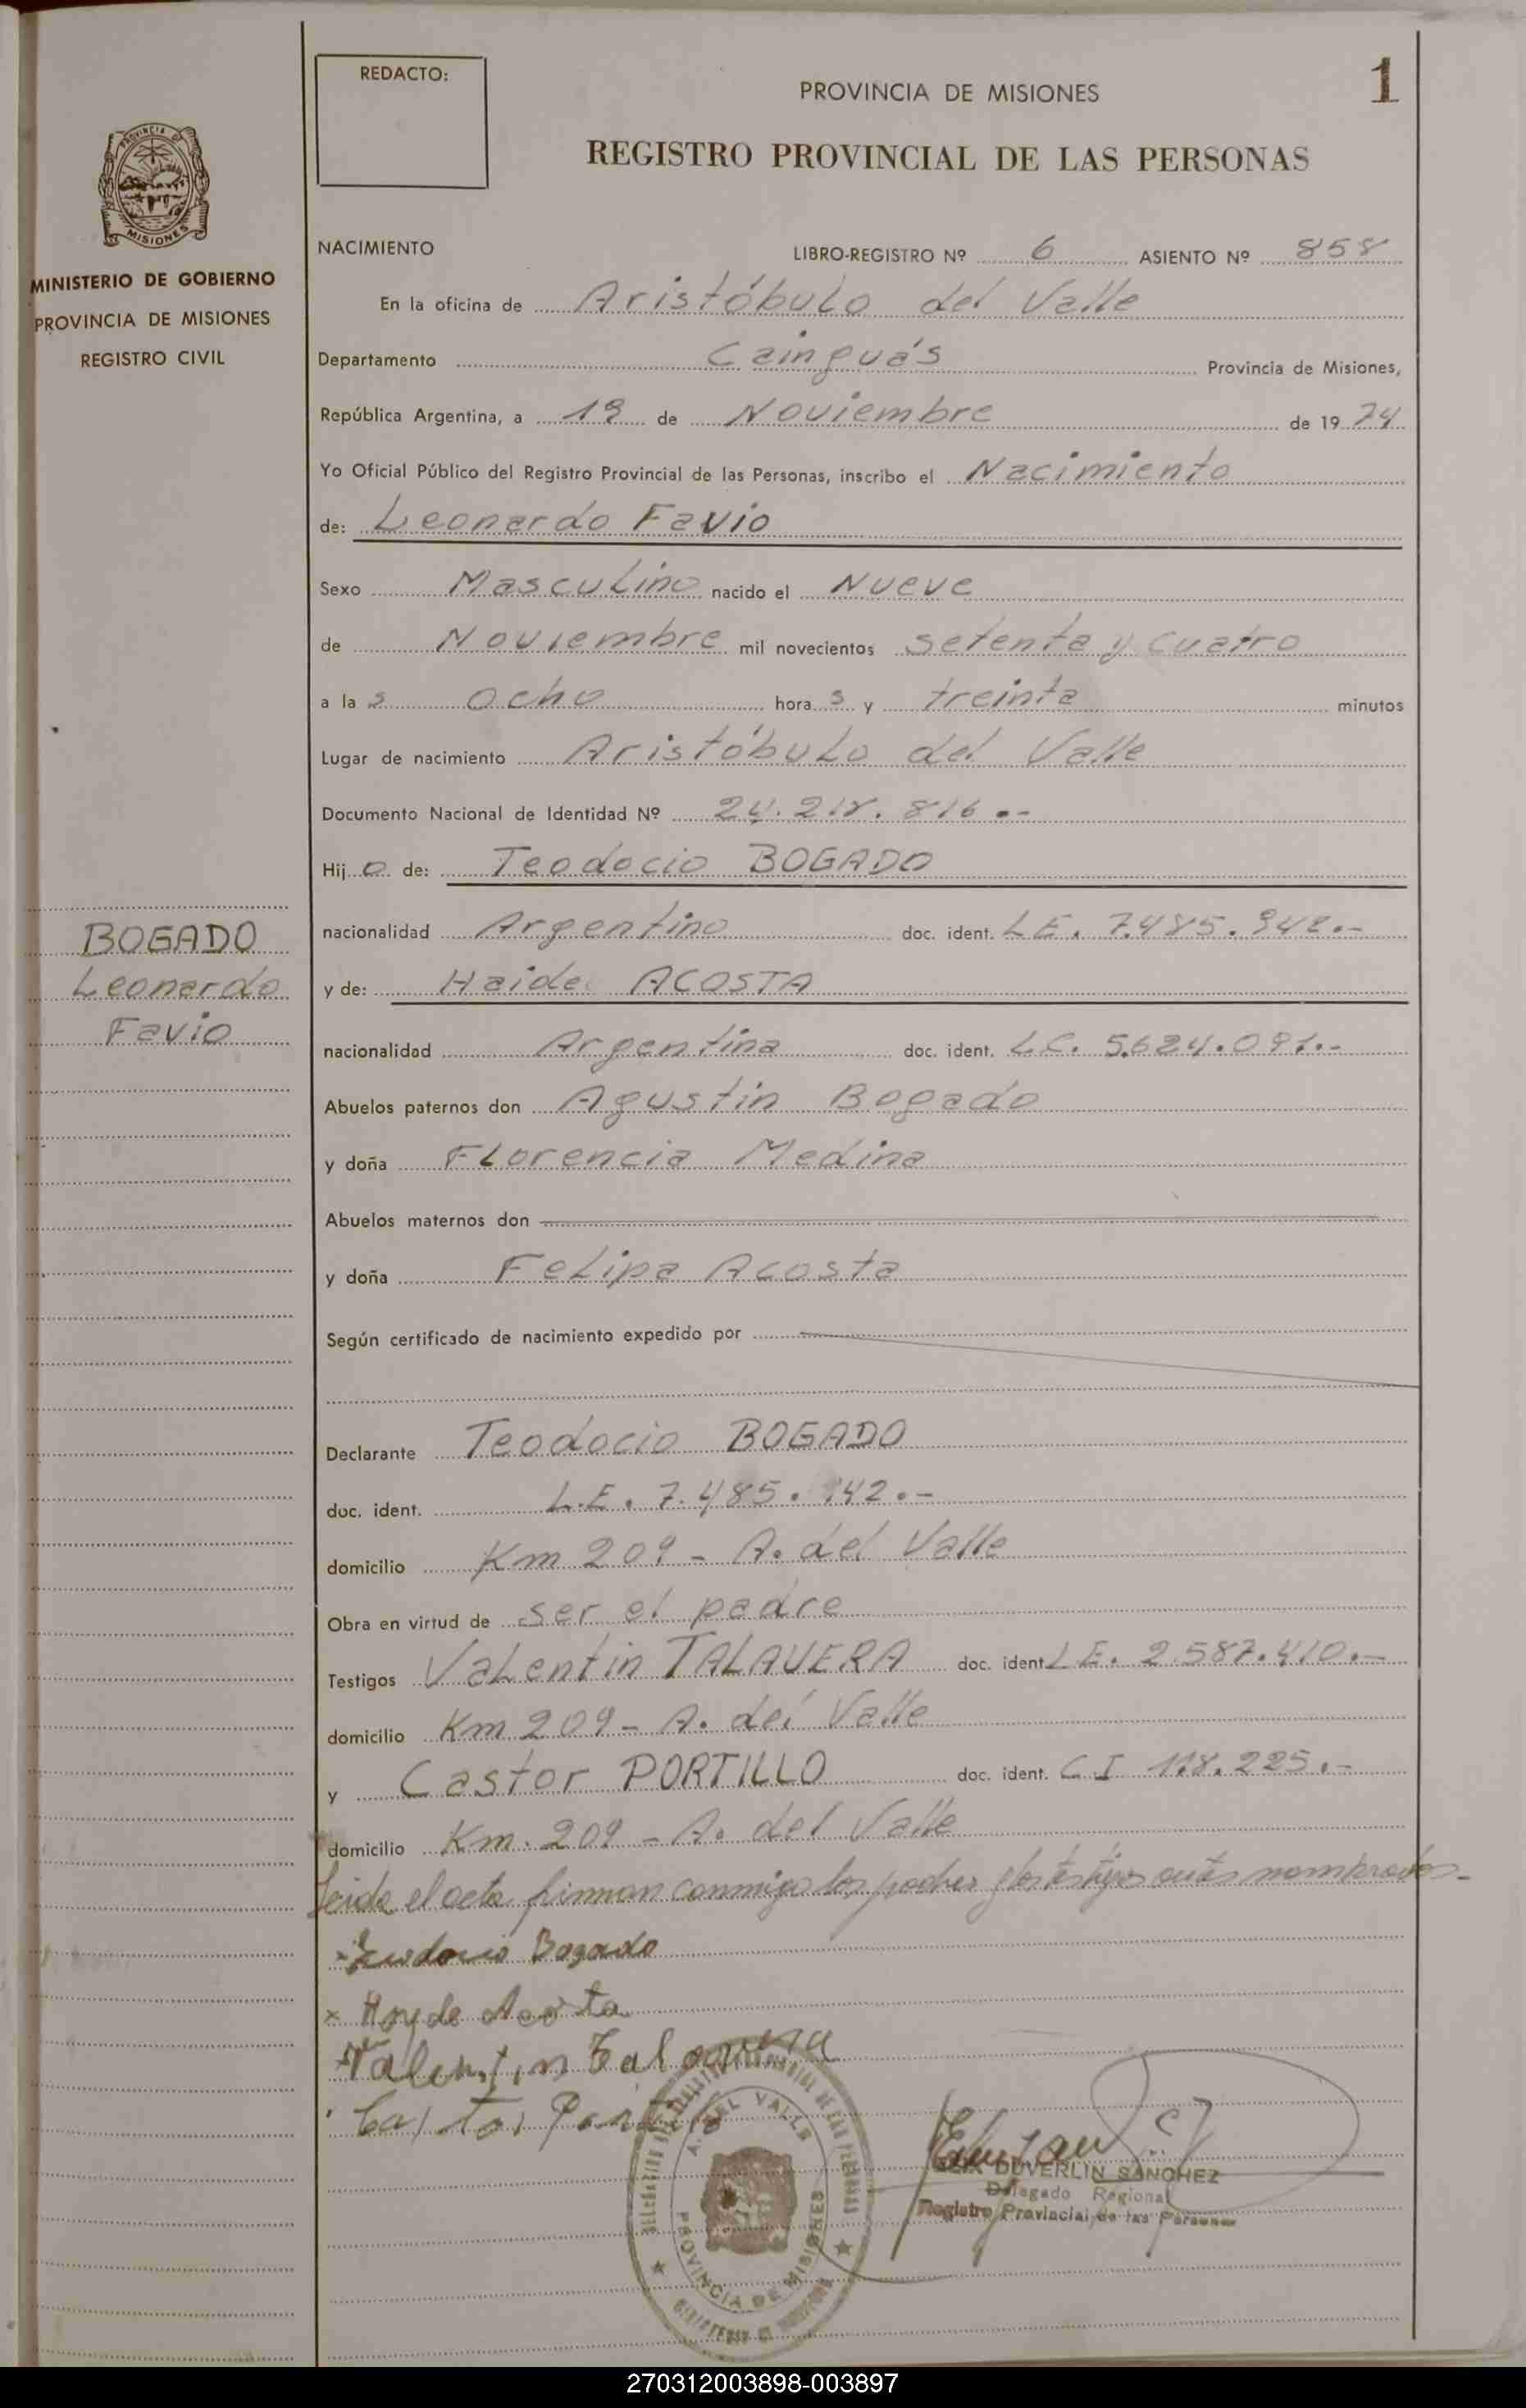 REDACTO:
PROVINCIA DE MISIONES
1
REGISTRO PROVINCIAL DE LAS PERSONAS
PROVINCIA DE
MISIONES
MINISTERIO DE GOBIERNO
PROVINCIA DE MISIONES
REGISTRO CIVIL
BOGADO
Leonardo
Favio
NACIMIENTO LIBRO-REGISTRO Nº 6 ASIENTO Nº 858
En la oficina de Aristóbulo del Valle
Departamento Cainguás Provincia de Misiones,
República Argentina, a de Noviembre de 1974
Yo Oficial Público del Registro Provincial de las Personas, inscribo el Nacimiento
de: Leonardo Favio
Sexo Masculino nacido el Nueve
de Noviembre mil novecientos setenta y cuatro
a las ocho horas y treinta minutos
Lugar de nacimiento Aristóbulo del Valle
Documento Nacional de Identidad Nº 24.218.816.-
Hijo de: Teodocio BOGADO
nacionalidad Argentino doc. ident. LE. 7.485.942.-
y de: Haide ACOSTA
nacionalidad Argentina doc. ident. LC. 5.624.091.-
Abuelos paternos don Agustin Bogado
y doña Florencia Medina
Abuelos maternos don
y doña Felipa Acosta
Según certificado de nacimiento expedido por
Declarante Teodocio BOGADO
doc. ident. L.E. 7.485.942.-
domicilio Km 209 - A. del Valle
Obra en virtud de ser el padre
Testigos Valentin TALAVERA doc. ident. LE. 2.587.410.-
domicilio Km 209 - A. del Valle
y Castor PORTILLO doc. ident. C.I 118.225.-
domicilio Km. 209 - A. del Valle
Leida el acta firman conmigo los padres y los testigos antes nombrados-
Teodocio Bogado
x Hayde Acosta
Valentin Talavera
Castor Portillo
A. DEL VALLE
PROVINCIA DE MISIONES
DUVERLIN SANCHEZ
Delegado Regional
Registro Provincial de las Personas
270312003898-003897